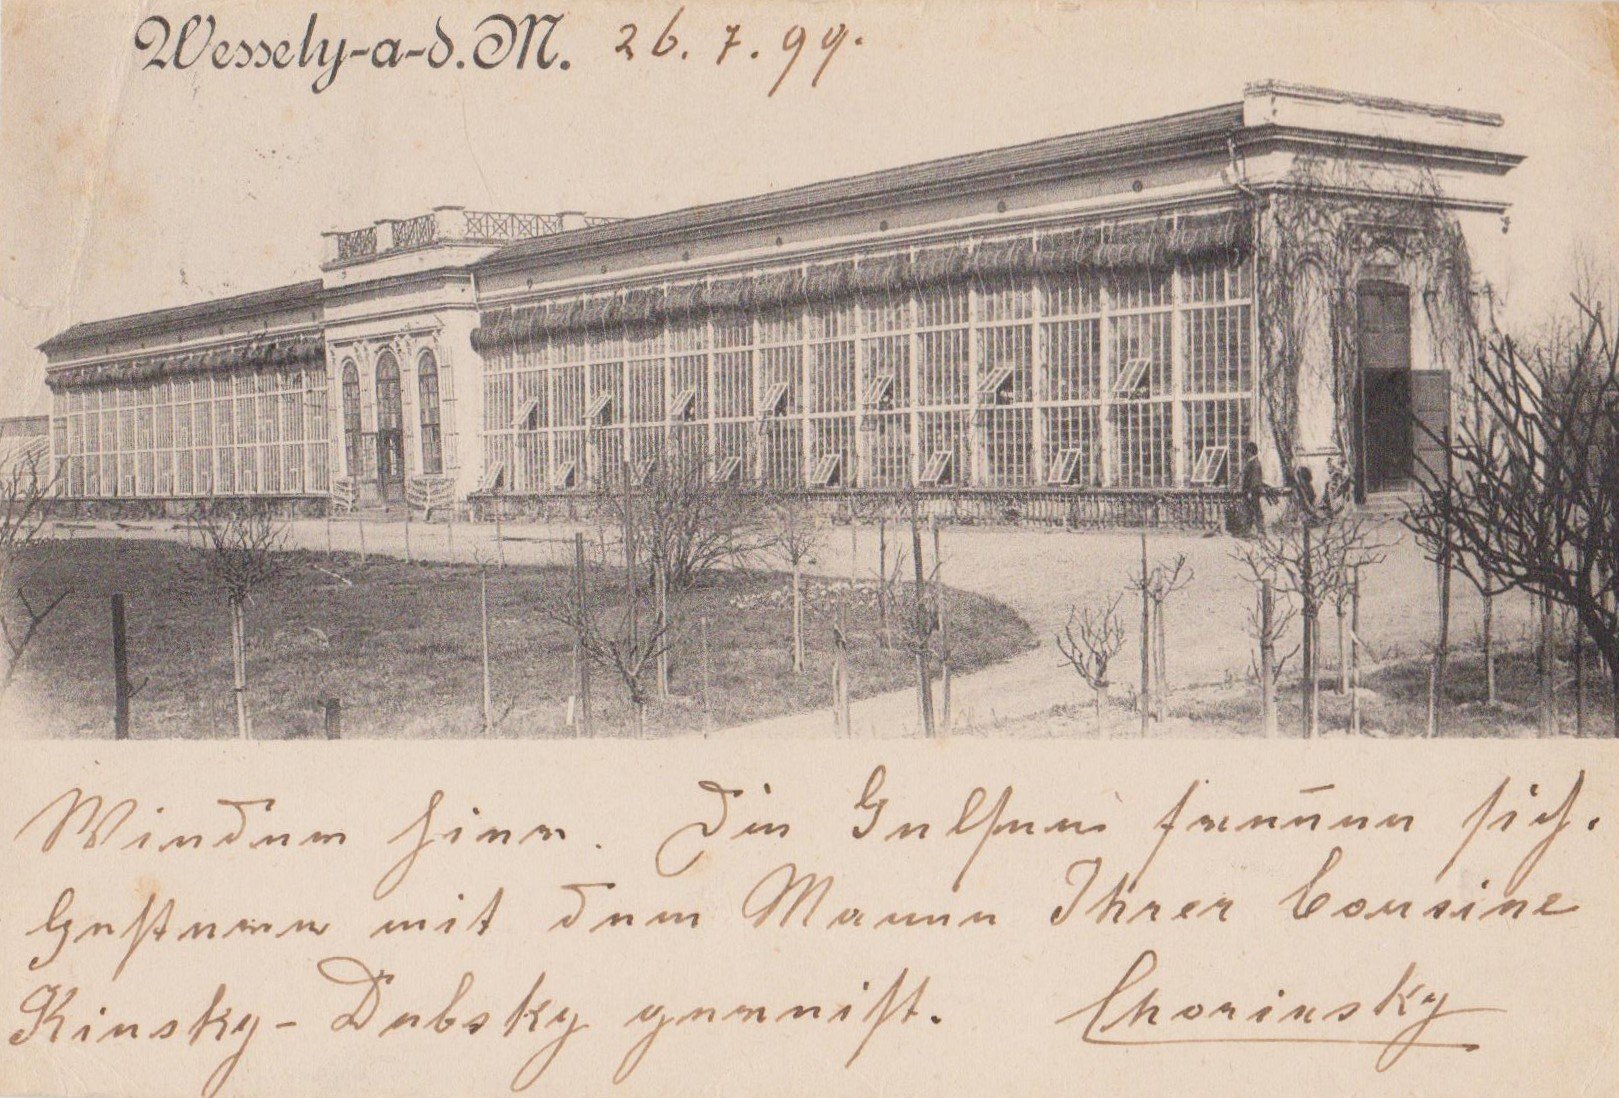 Wessely-a-d. M. 26. 7. 99.
Wieder hier. Die Gelsen freuen sich.
Gestern mit dem Mann Ihrer Cousine
Kinsky-Dubsky gereist. Chorinsky